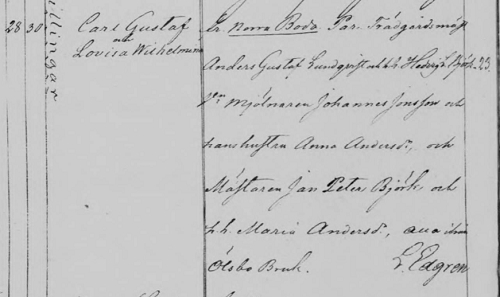 28 30 Tvillingar Carl Gustaf fr. Norra Boda Par. Trädgårdsmäst.
och
Lovisa Wilhelmina Anders Gustaf Lundqvist och h. Hedvig Björk. 23.
Vn Mjölnaren Johannes Jonsson och
hans hustru Anna Andersd., och
Mästaren Jan Peter Björk och
h.h. Maria Andersd., alla ifrån
Ölsbo Bruk. L. Edgren